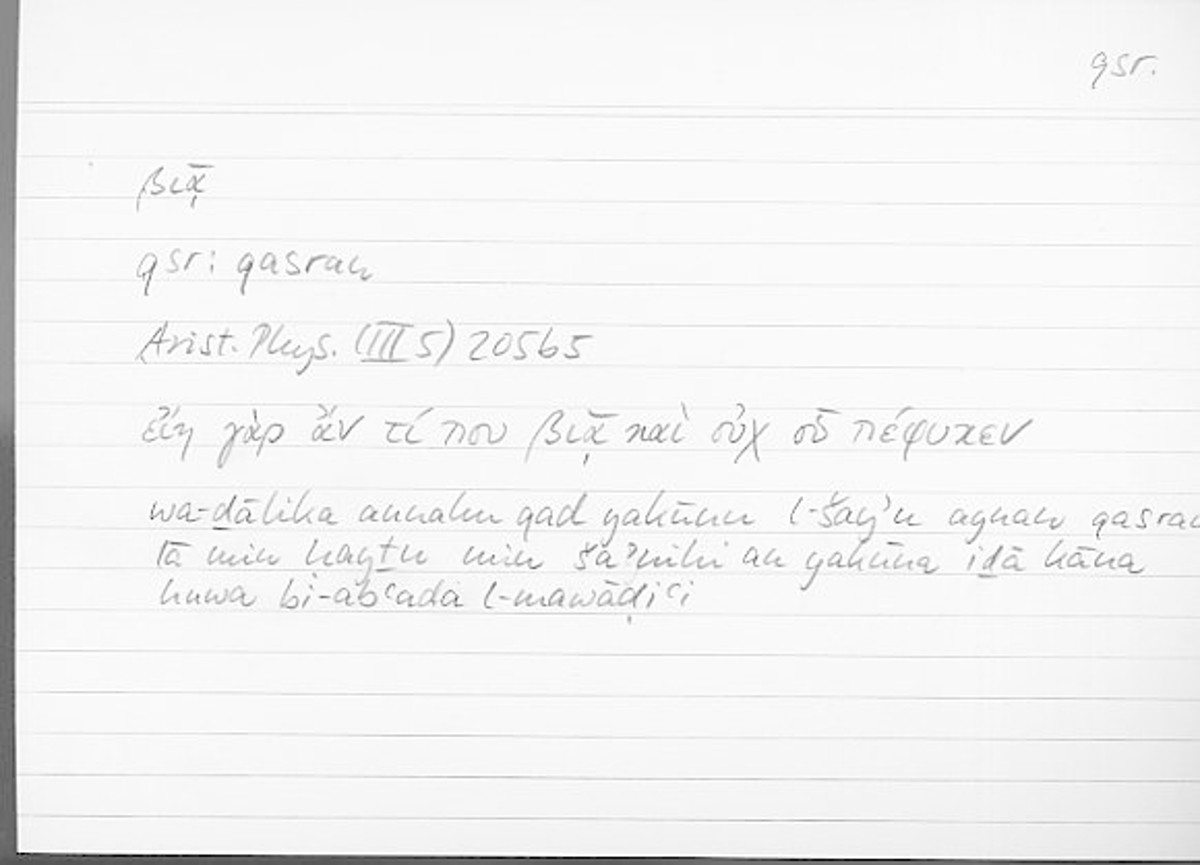 qsr.
βιᾷ
qsr: qasran
Arist. Phys. (III 5) 205b5
εἴη γὰρ ἄν τί που βιᾷ καὶ οὐχ οὗ πέφυκεν
wa-ḏālika annahu qad yakūnu l-šayʾu aynan qasran
lā min hayṯu min šaʾnihi an yakūna iḏā kāna
huwa bi-abʿada l-mawāḍiʿi